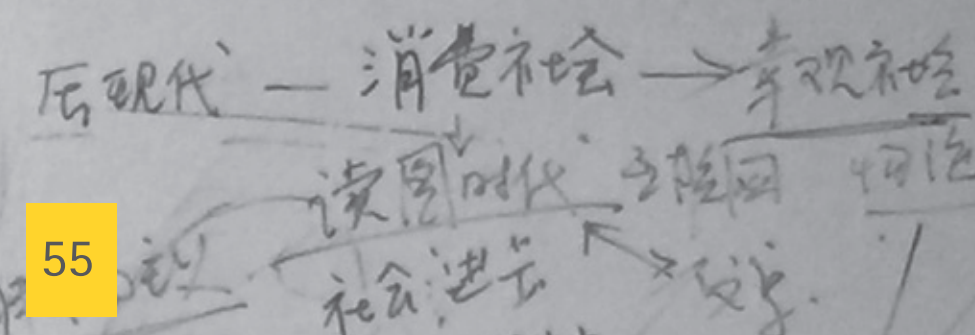 后现代 — 消费社会 → 景观社会
读图时代 互联网
55 主义 社会进步